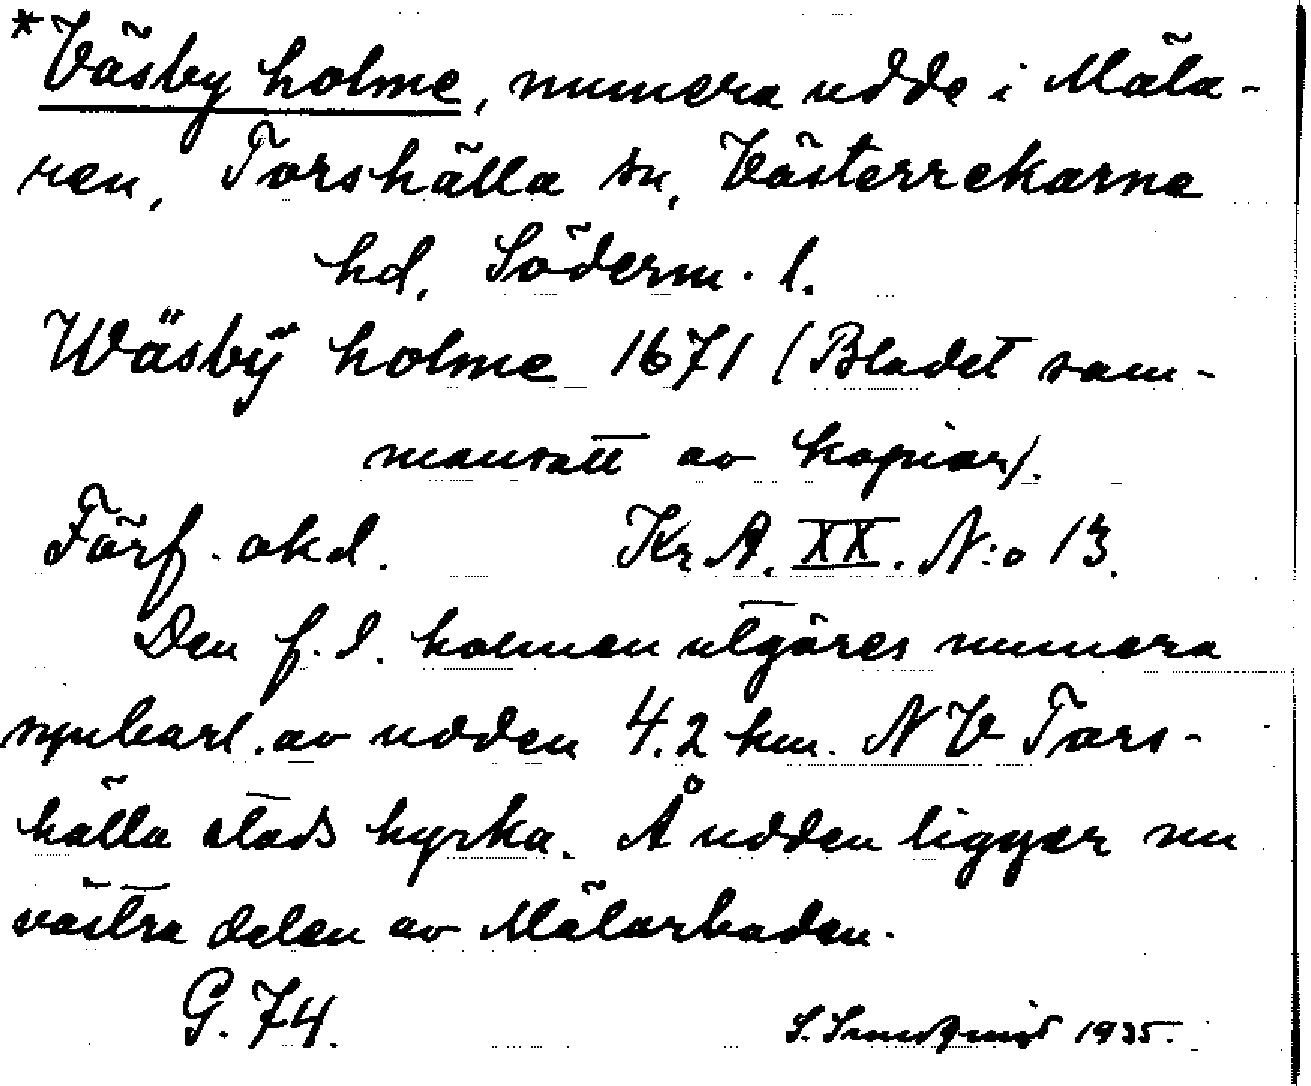 *Väsby holme, numera udde i Mäla-
ren, Torshälla sn, Västerrekarne
hd, Söderm. l.
Wäsbÿ holme 1671 (Bladet sam-
mansatt av kopior).
Förf. okd. Kr. A. XX. N:o 13.
Den f.d. holmen utgöres numera
synbarl. av udden 4.2 km. NV Tors-
hälla stads kyrka. Å udden ligger nu
västra delen av Mälarbaden.
G. 74.
S. 1935.